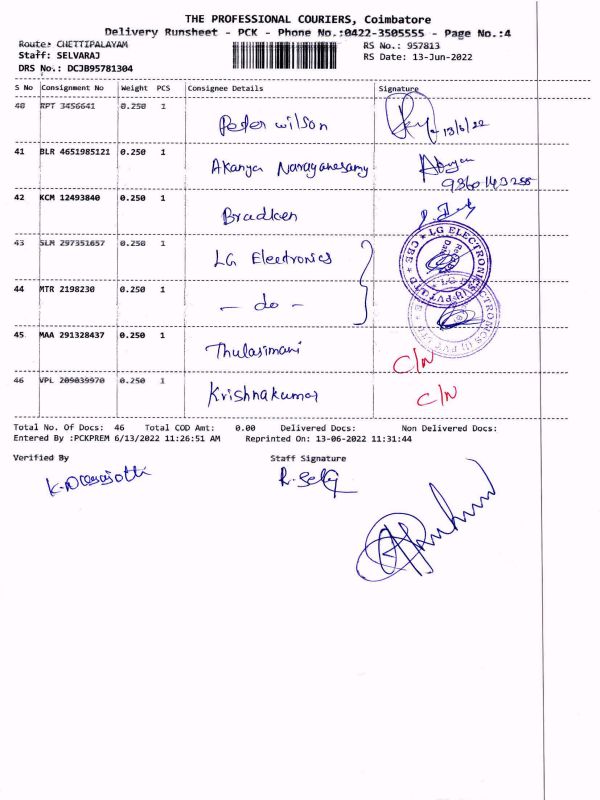 THE PROFESSIONAL COURIERS, Coimbatore
Delivery Runsheet - PCK - Phone No.:0422-3505555 - Page No.:4
Route: CHETTIPALAYAM
Staff: SELVARAJ
DRS No.: DCJB95781304
RS No.: 957813
RS Date: 13-Jun-2022
S No Consignment No Weight PCS Consignee Details Signature
40 RPT 3456641 0.250 1
Peter Wilson 13/6/22
41 BLR 4651985121 0.250 1
Akanya Narayanasamy
42 KCM 12493840 0.250 1
Bradken
43 SLM 297351657 0.250 1
LG Electronics
44 MTR 2198230 0.250 1
- do -
LG ELECTRONICS
45 MAA 291328437 0.250 1
Thulasimani C/N
46 VPL 209039970 0.250 1
Krishnakumar C/N
Total No. Of Docs: 46 Total COD Amt: 0.00 Delivered Docs: Non Delivered Docs:
Entered By :PCKPREM 6/13/2022 11:26:51 AM Reprinted On: 13-06-2022 11:31:44
Verified By Staff Signature